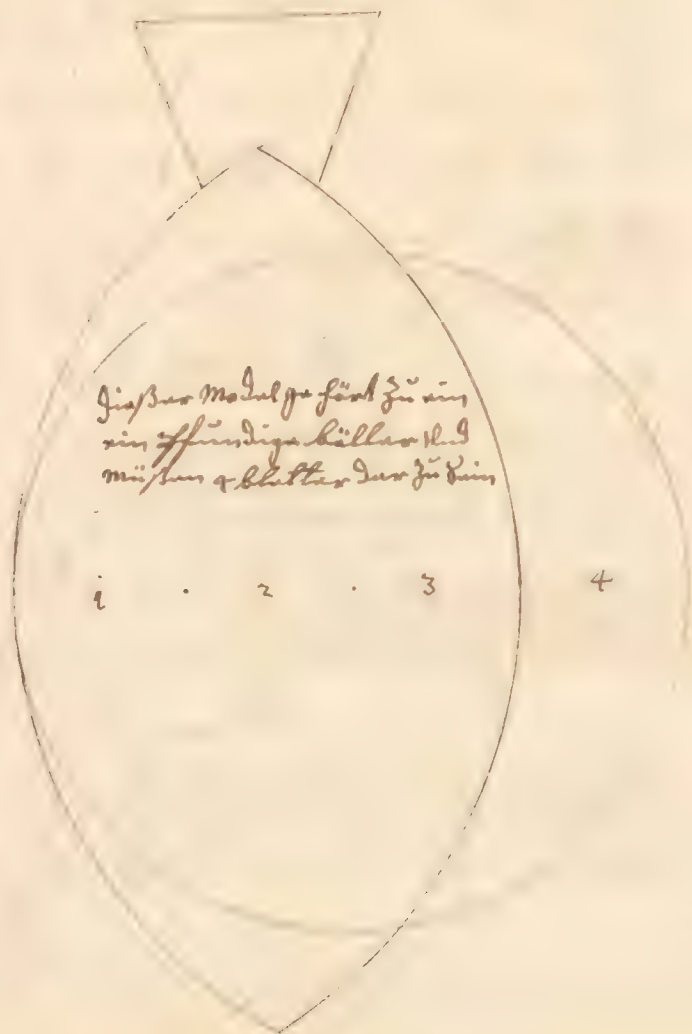 dießer Modal gehört zu ein
ein Pfundige böller Und
müßen 4 bletter dar zu sein
1 · 2 · 3 4